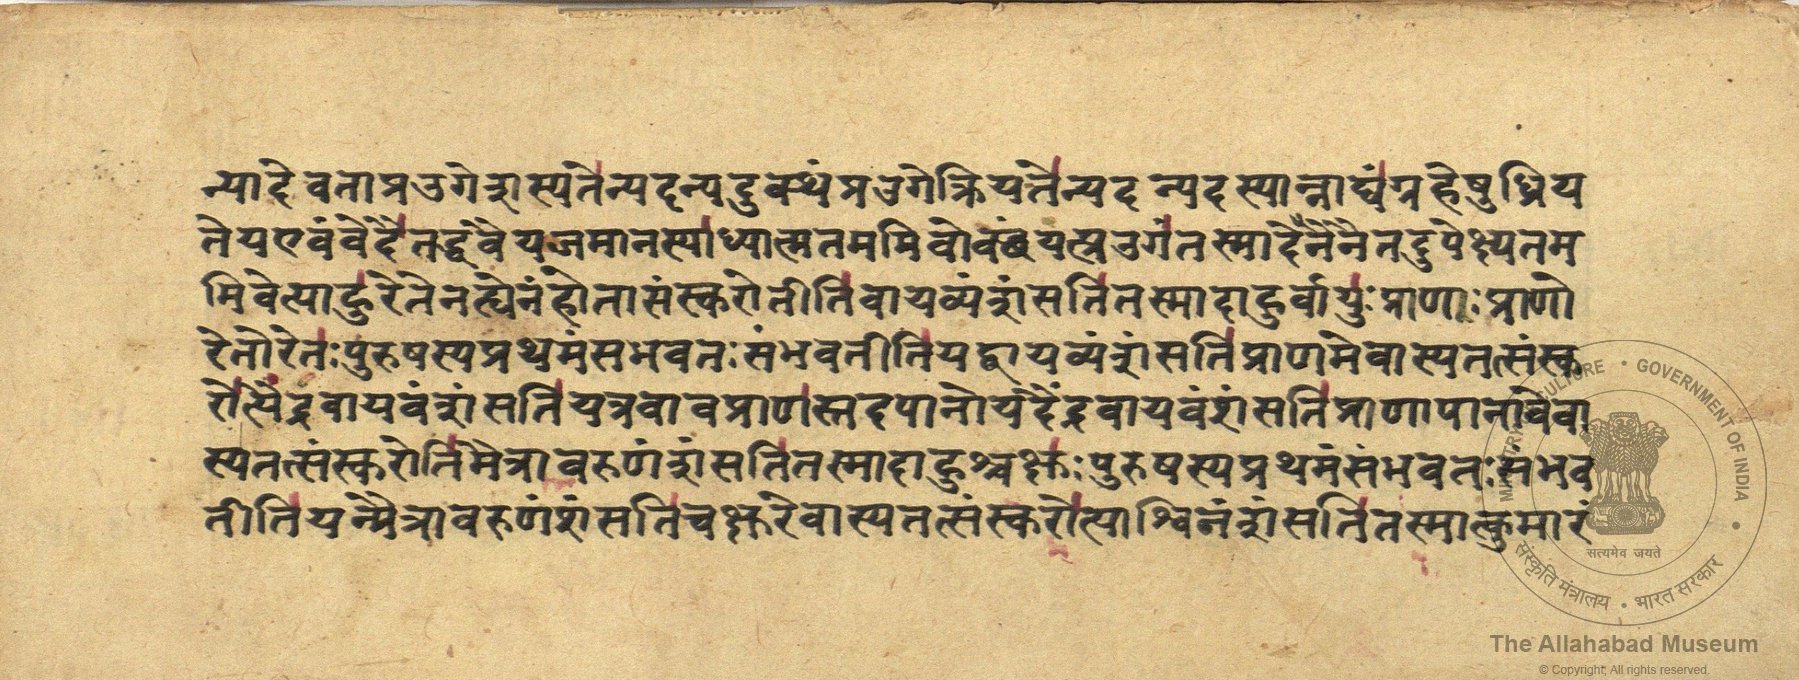 न्यादेवताप्रउगेशस्यतेन्यदन्यदुक्थंप्रउगेक्रियतेन्यदन्यदस्यान्नाद्यंग्रहेषुध्रिय
तेयएवंवेदैतद्धवैयजमानस्याध्यात्मतममिवोक्थंयत्प्रउगंतस्मादेनैनैतदुपेक्ष्यतम
मिवेत्याहुरेतेनह्येनंहोतासंस्करोतीतिवायव्यंशंसतितस्मादाहुर्वायुःप्राणाःप्राणो
रेतोरेतःपुरुषस्यप्रथमंसभवतःसंभवतीतियद्वायव्यंशंसतिप्राणमेवास्यतत्संस्क
रोत्यैंद्रवायवंशंसतियत्रवावप्राणस्तदपानोयदैंद्रवायवंशंसतिप्राणापानावेवा
स्यतत्संस्करोतिमैत्रावरुणंशंसतितस्मादाहुश्चक्षुःपुरुषस्यप्रथमंसंभवतःसंभव
तीतियन्मैत्रावरुणंशंसतिचक्षुरेवास्यतत्संस्करोत्याश्विनंशंसतितस्मात्कुमारं
MINISTRY OF CULTURE • GOVERNMENT OF INDIA
सत्यमेव जयते
संस्कृति मंत्रालय • भारत सरकार
The Allahabad Museum
© Copyright; All rights reserved.